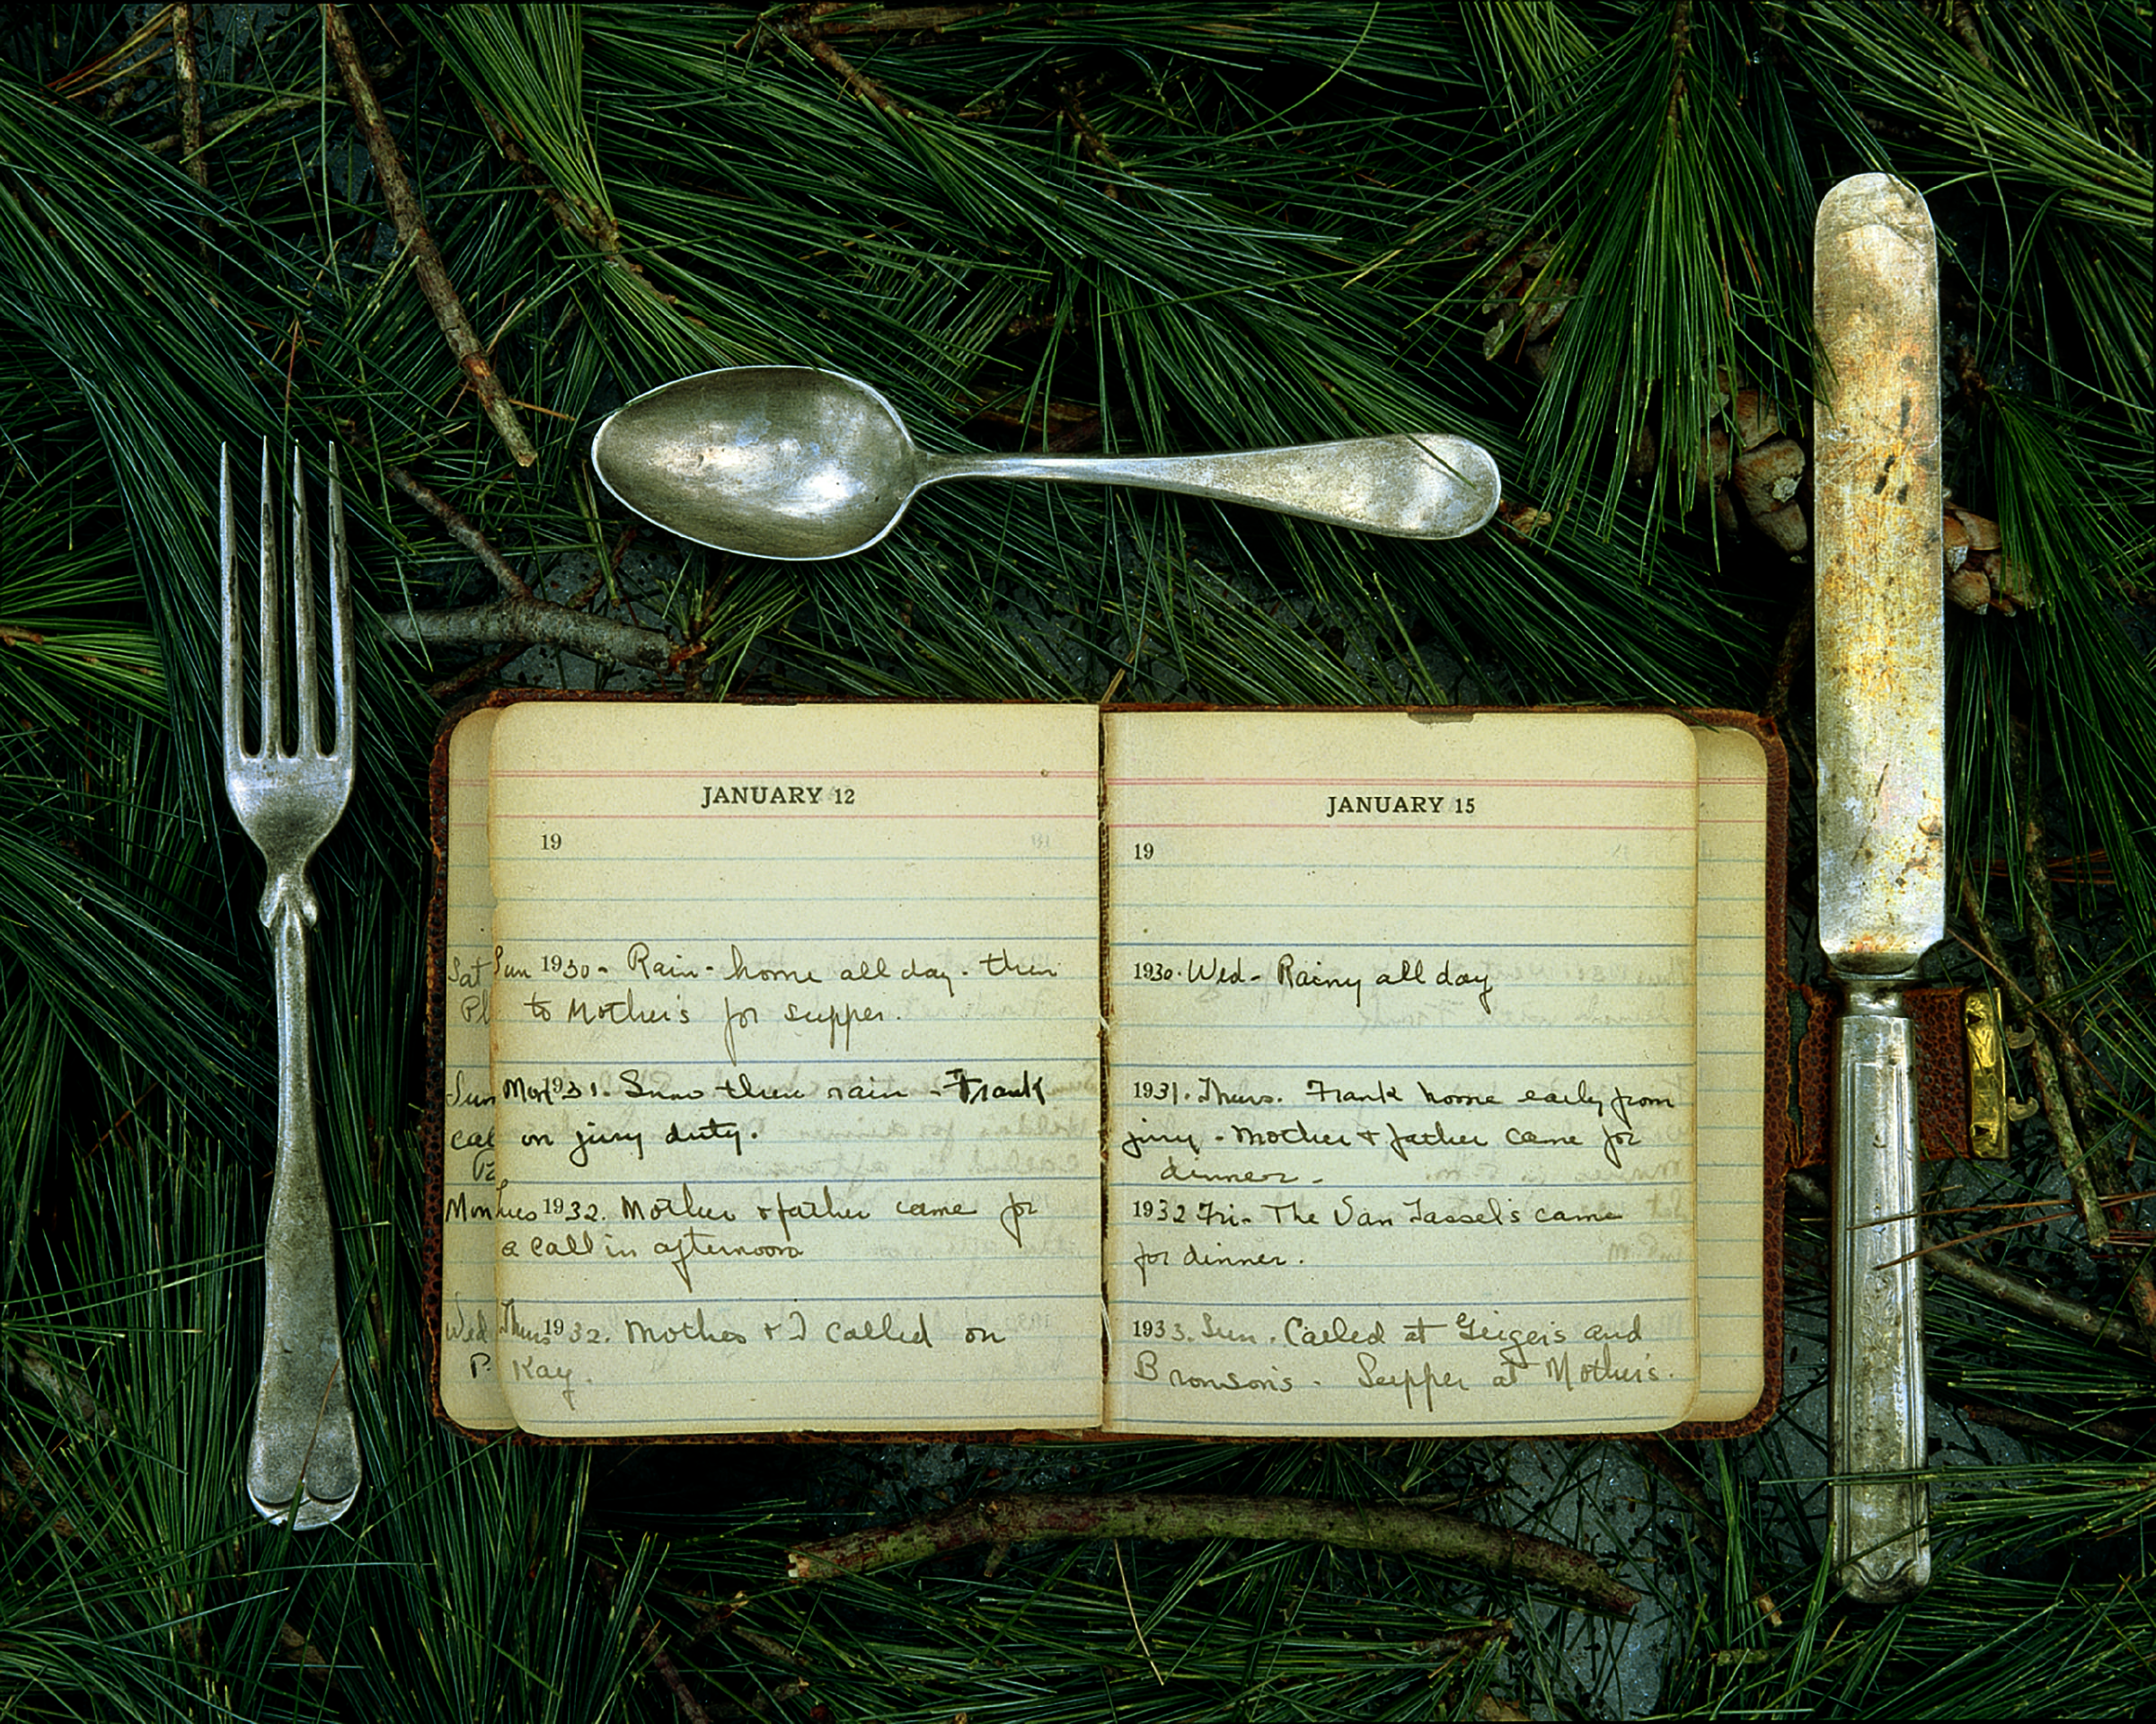 JANUARY 12
19
Sun 1930 - Rain - home all day - then
to Mother's for supper.
Mon 1931. Snow then rain - Frank
on jury duty.
Tues 1932. Mother & father came for
a call in afternoon
Thurs 1932. Mother & I called on
Kay.
Sat
Pl
Sun
cal
Mon
Wed
P.
JANUARY 15
19
1930. Wed - Rainy all day
1931. Thurs. Frank home early from
jury - Mother & father came for
dinner -
1932 Fri - The Van Tassel's came
for dinner.
1933. Sun. Called at Geiger's and
Bronson's - Supper at Mother's.